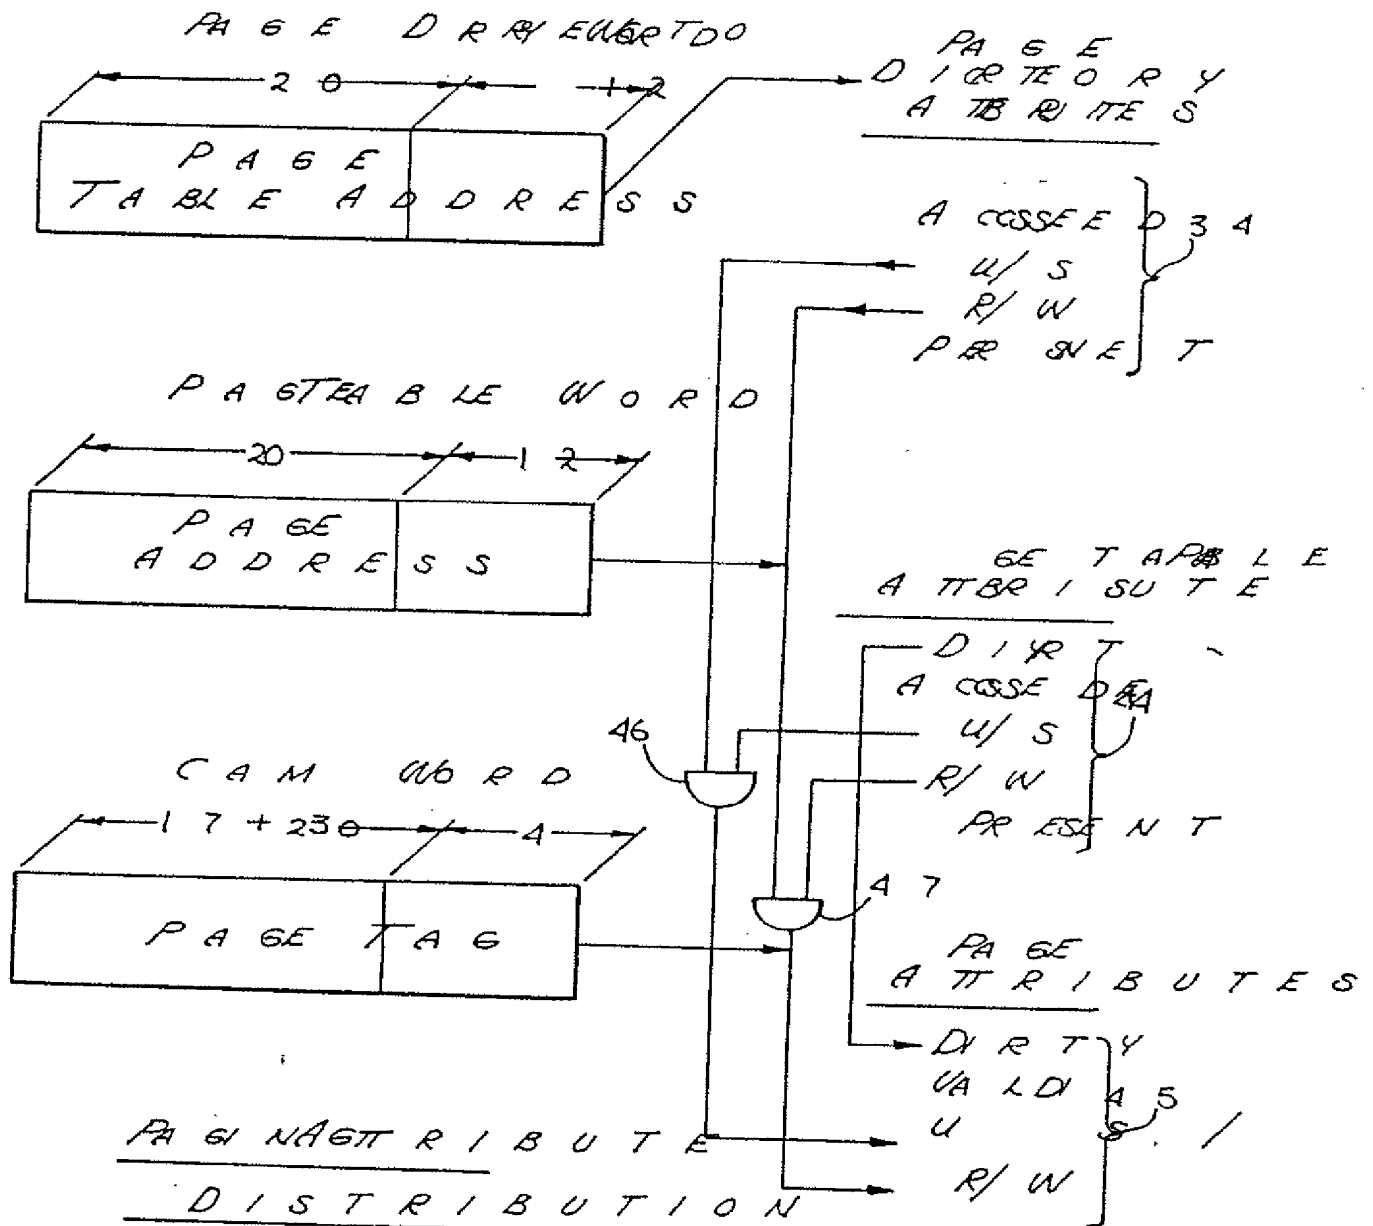 PAGE DIRECTORY WORD
20
12
PAGE
TABLE ADDRESS
PAGE
DIRECTORY
ATTRIBUTES
ACCESSED
34
U/S
R/W
PRESENT
PAGE TABLE WORD
20
12
PAGE
ADDRESS
PAGE TABLE
ATTRIBUTES
DIRTY
ACCESSED
U/S
R/W
PRESENT
46
CAM WORD
4
47
PAGE TAG
PAGE
ATTRIBUTES
DIRTY
VALID
45
U/S
R/W
PAGING ATTRIBUTE
DISTRIBUTION